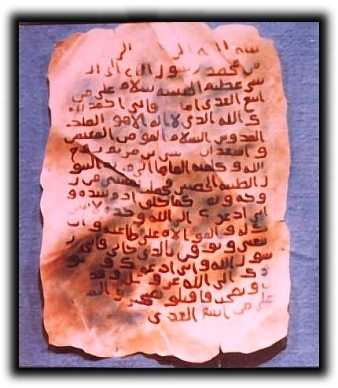 بسم الله
من محمد رسول الله الى ال
شي عظيم الحبشه سلام على من
اتبع الهدى اما فاني احمد الي
ك الله الذي لا اله الا هو الملك
القدوس السلام المومن المهيمن
و اشهد ان عيسى بن مريم روح
الله و كلمته القاها الى مريم البتو
ل الطيبه الحصينه فحملت بعيسى من ر
وحه و نفخه كما خلق ادم بيده و
اني ادعوك الى الله وحده لا شر
يك له و الموالاه على طاعته و ان
تتبعني و توقن بالذي جاني فاني ر
سول الله و اني ادعوك و جنو
دك الى الله عز و جل و قد
و نصحت فاقبلو
على من اتبع الهدى